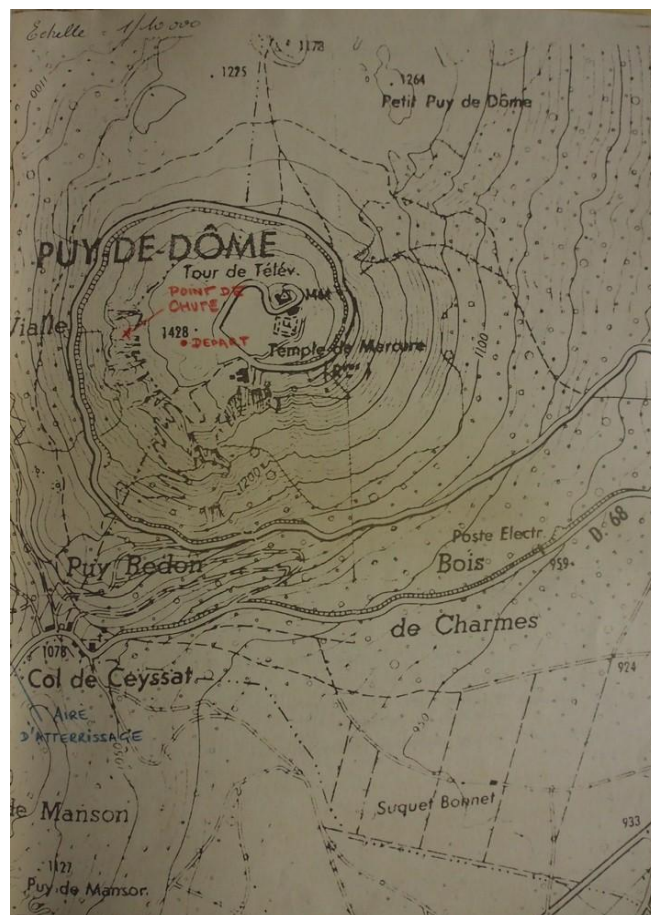 Echelle = 1/10 000
1100
1173
1225
1264
Petit Puy de Dôme
PUY DE DÔME
Tour de Télév.
POINT DE
CHUTE
1464
Vialle
1428
DEPART
Temple de Mercure
(R^nes)
1100
1200
Poste Electr.
D. 68
Puy Redon
Bois
959
de Charmes
1078
Col de Ceyssat
924
AIRE
D'ATTERRISSAGE
950
1050
Suquet Bonnet
de Manson
933
1127
Puy de Manson